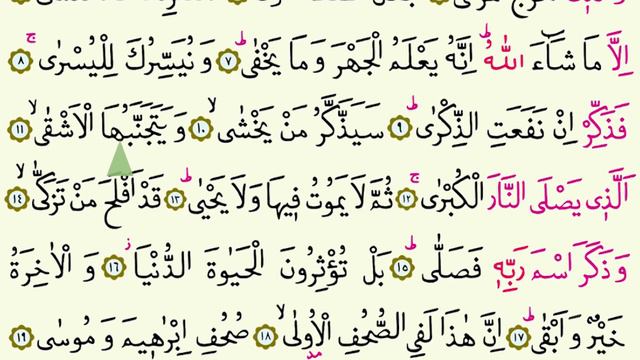 اِلَّا مَا شَآءَ اللّٰهُ ؕ اِنَّهٗ يَعْلَمُ الْجَهْرَ وَ مَا يَخْفٰى ؕ ﴿۷﴾ وَ نُيَسِّرُكَ لِلْيُسْرٰى ۚ ﴿۸﴾
فَذَكِّرْ اِنْ نَّفَعَتِ الذِّكْرٰى ؕ ﴿۹﴾ سَيَذَّكَّرُ مَنْ يَّخْشٰى ۙ ﴿۱۰﴾ وَ يَتَجَنَّبُهَا الْاَشْقٰى ۙ ﴿۱۱﴾
الَّذِىْ يَصْلَى النَّارَ الْكُبْرٰى ۚ ﴿۱۲﴾ ثُمَّ لَا يَمُوْتُ فِيْهَا وَ لَا يَحْيٰى ؕ ﴿۱۳﴾ قَدْ اَفْلَحَ مَنْ تَزَكّٰى ۙ ﴿۱۴﴾
وَ ذَكَرَ اسْمَ رَبِّهٖ فَصَلّٰى ؕ ﴿۱۵﴾ بَلْ تُؤْثِرُوْنَ الْحَيٰوةَ الدُّنْيَا ۖ ﴿۱۶﴾ وَ الْاٰخِرَةُ
خَيْرٌ وَّ اَبْقٰى ؕ ﴿۱۷﴾ اِنَّ هٰذَا لَفِى الصُّحُفِ الْاُوْلٰى ۙ ﴿۱۸﴾ صُحُفِ اِبْرٰهِيْمَ وَ مُوْسٰى ﴿۱۹﴾